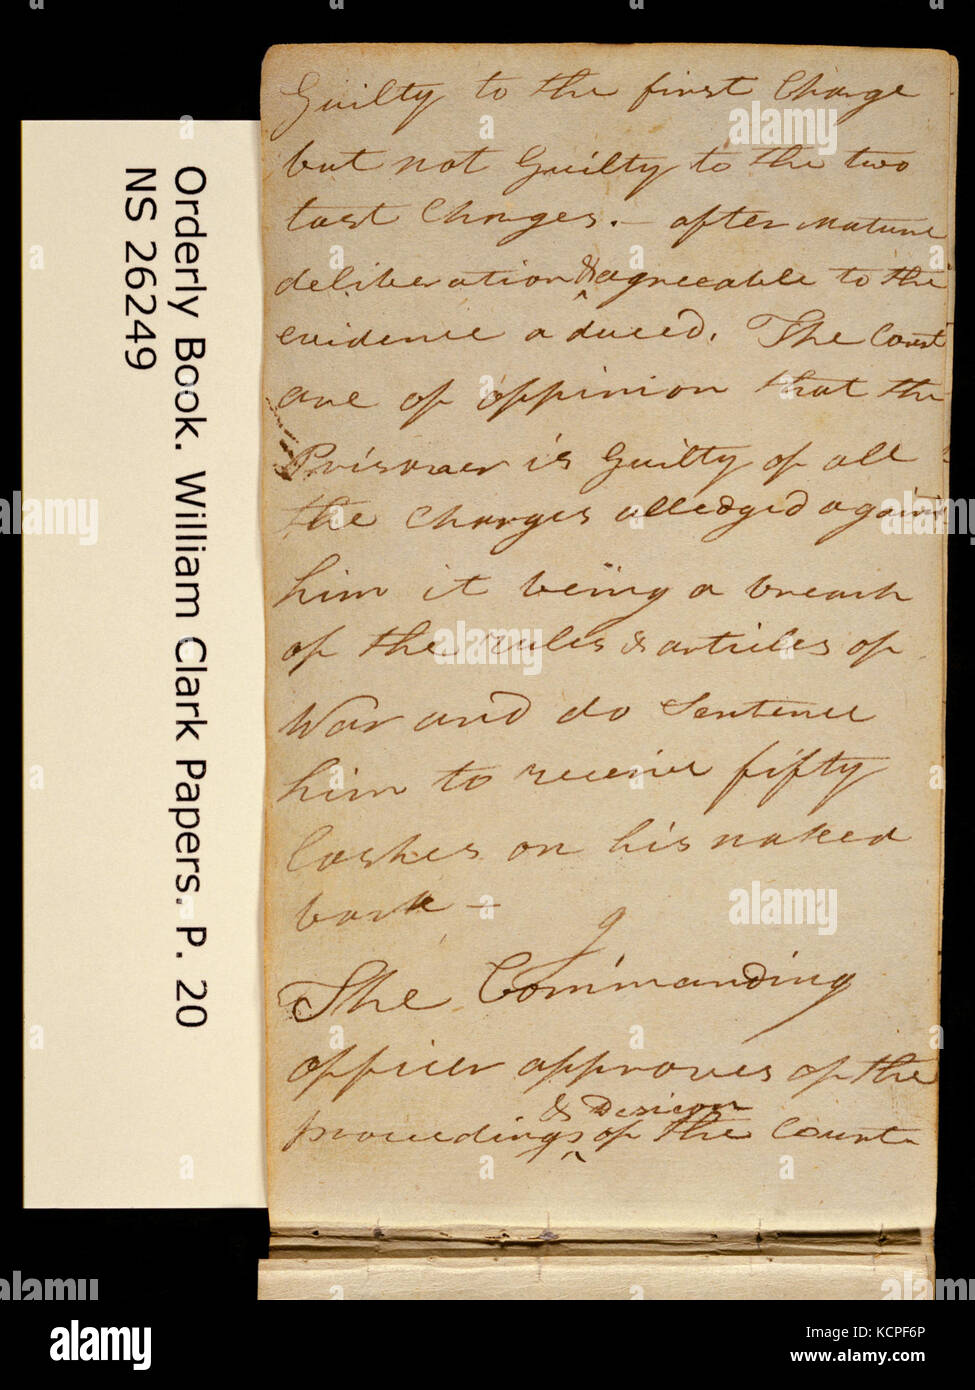 Guilty to the first Charge
but not Guilty to the two
last Charges. — after Mature
deliberation & agreeable to the
evidence aduced. The Court
are of oppinion that the
Prisoner is Guilty of all
the Charges alledged against
him it being a breach
of the rules & articles of
War and do Sentence
him to receive fifty
lashes on his naked
back —
The Commanding
officer approves of the
proceedings & Desicon of the Court
Orderly Book. William Clark Papers. P. 20
NS 26249
alamy
a
alamy stock photo
KCPF6P
www.alamy.com